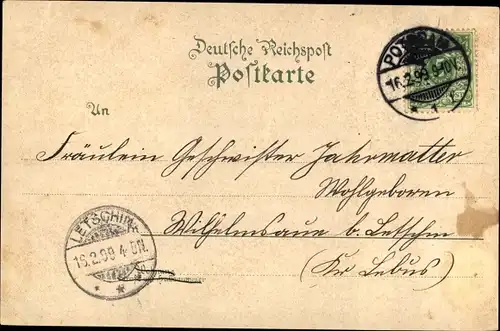 Deutsche Reichspost
Postkarte
An
16.2.99 4-5N.
* 1
Fräulein Geschwister Jahrmatter
Wohlgeboren
Wilhelmsaue b. Letschin
(Kr Lebus)
LETSCHIN
16.2.99 4-N.
* *